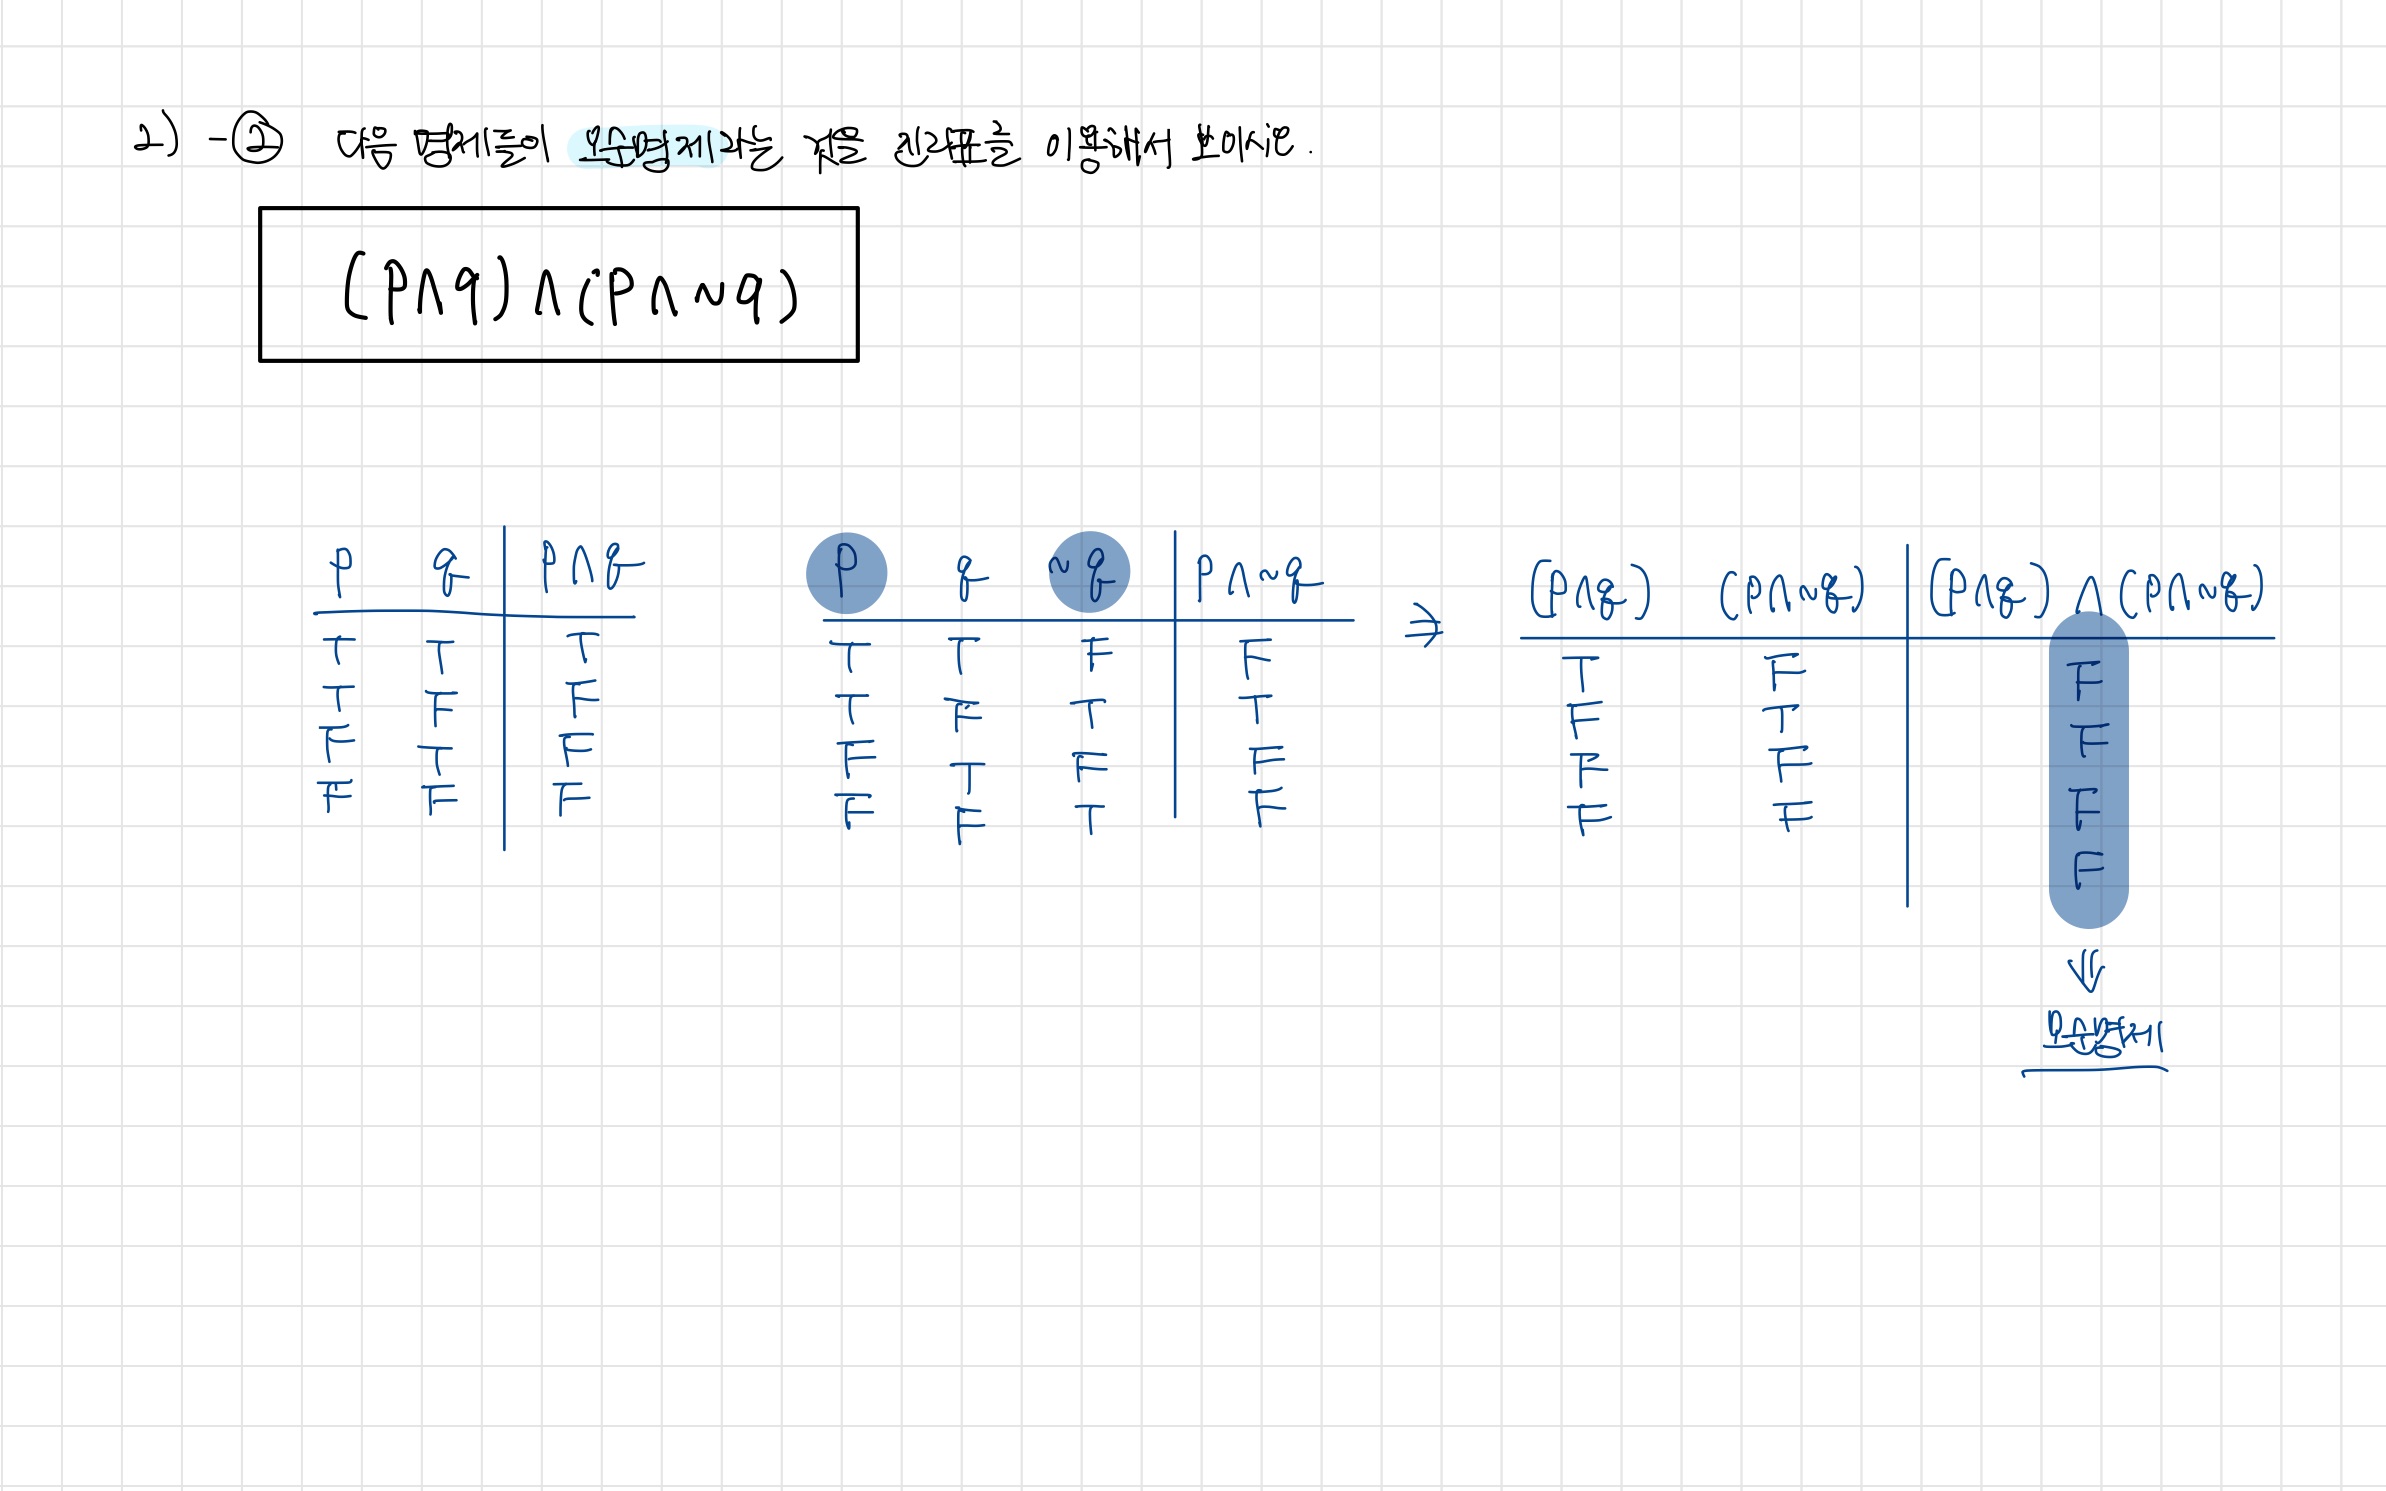 2) - ② 다음 명제들이 모순명제라는 것을 진리표를 이용해서 보이시오.
(P∧q)∧(P∧~q)
P q P∧q
T T T
T F F
F T F
F F F
P q ~q P∧~q
T T F F
T F T T
F T F F
F F T F
⇒
(P∧q) (P∧~q) (P∧q)∧(P∧~q)
T F F
F T F
F F F
F F F
⇓
모순명제